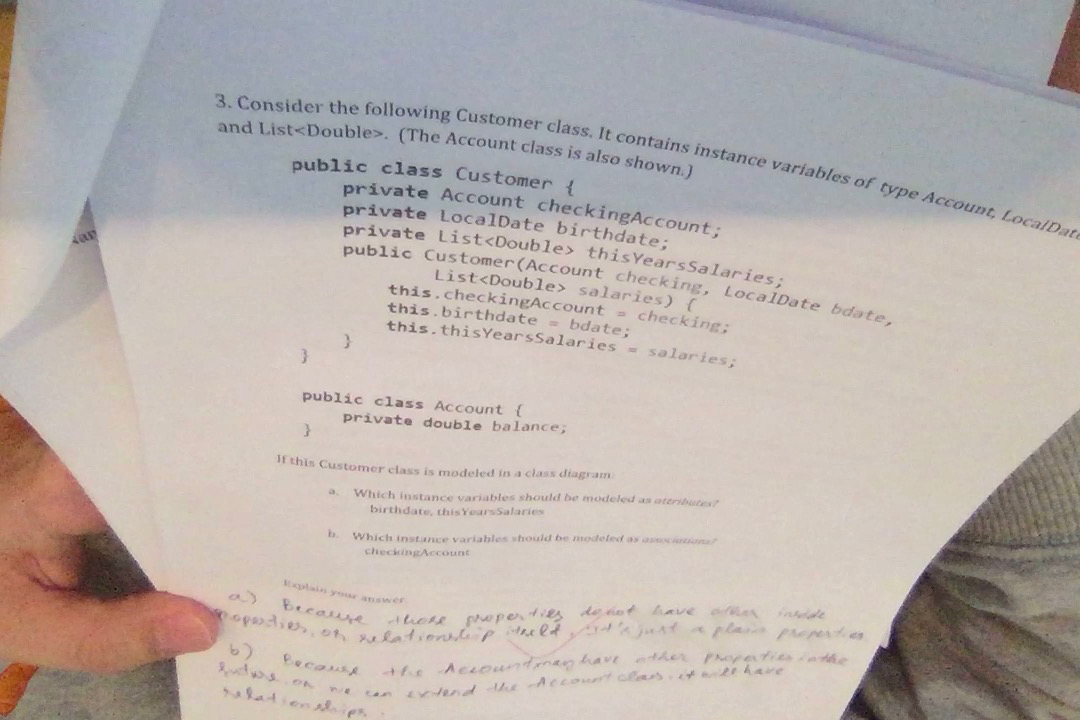 3. Consider the following Customer class. It contains instance variables of type Account, LocalDate
and List<Double>. (The Account class is also shown.)
public class Customer {
private Account checkingAccount;
private LocalDate birthdate;
private List<Double> thisYearsSalaries;
public Customer(Account checking, LocalDate bdate,
List<Double> salaries) {
this.checkingAccount = checking;
this.birthdate = bdate;
this.thisYearsSalaries = salaries;
}
}
public class Account {
private double balance;
}
If this Customer class is modeled in a class diagram:
a. Which instance variables should be modeled as attributes?
birthdate, thisYearsSalaries
b. Which instance variables should be modeled as associations?
checkingAccount
Explain your answer
a) Because those properties do not have other inside
properties, or relationship itself, it's just a plain properties
b) Because the Account may have other properties in the
future, or we can extend the Account class, it will have
relationships.